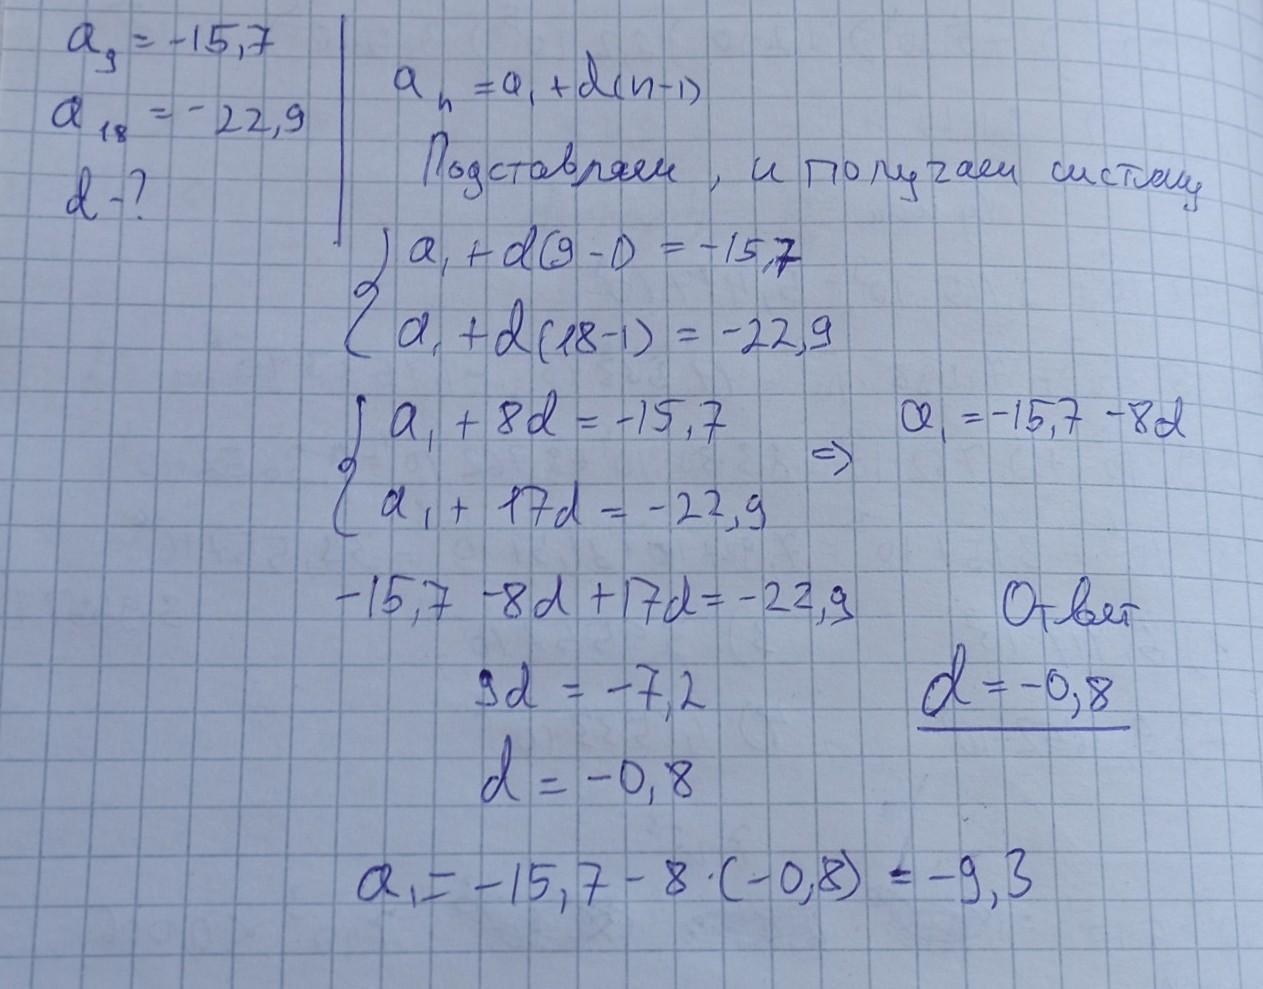 a₉ = -15,7
a₁₈ = -22,9
d - ?
aₙ = a₁ + d(n-1)
Подставляем, и получаем систему
{ a₁ + d(9-1) = -15,7
a₁ + d(18-1) = -22,9
{ a₁ + 8d = -15,7 ⇒ a₁ = -15,7 - 8d
a₁ + 17d = -22,9
-15,7 - 8d + 17d = -22,9
9d = -7,2
d = -0,8
Ответ
d = -0,8
a₁ = -15,7 - 8 · (-0,8) = -9,3